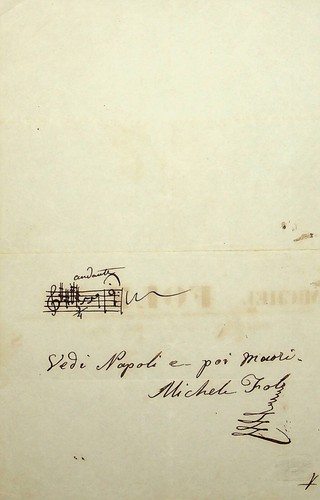 andante
Vedi Napoli e poi muori.
Michele Folz